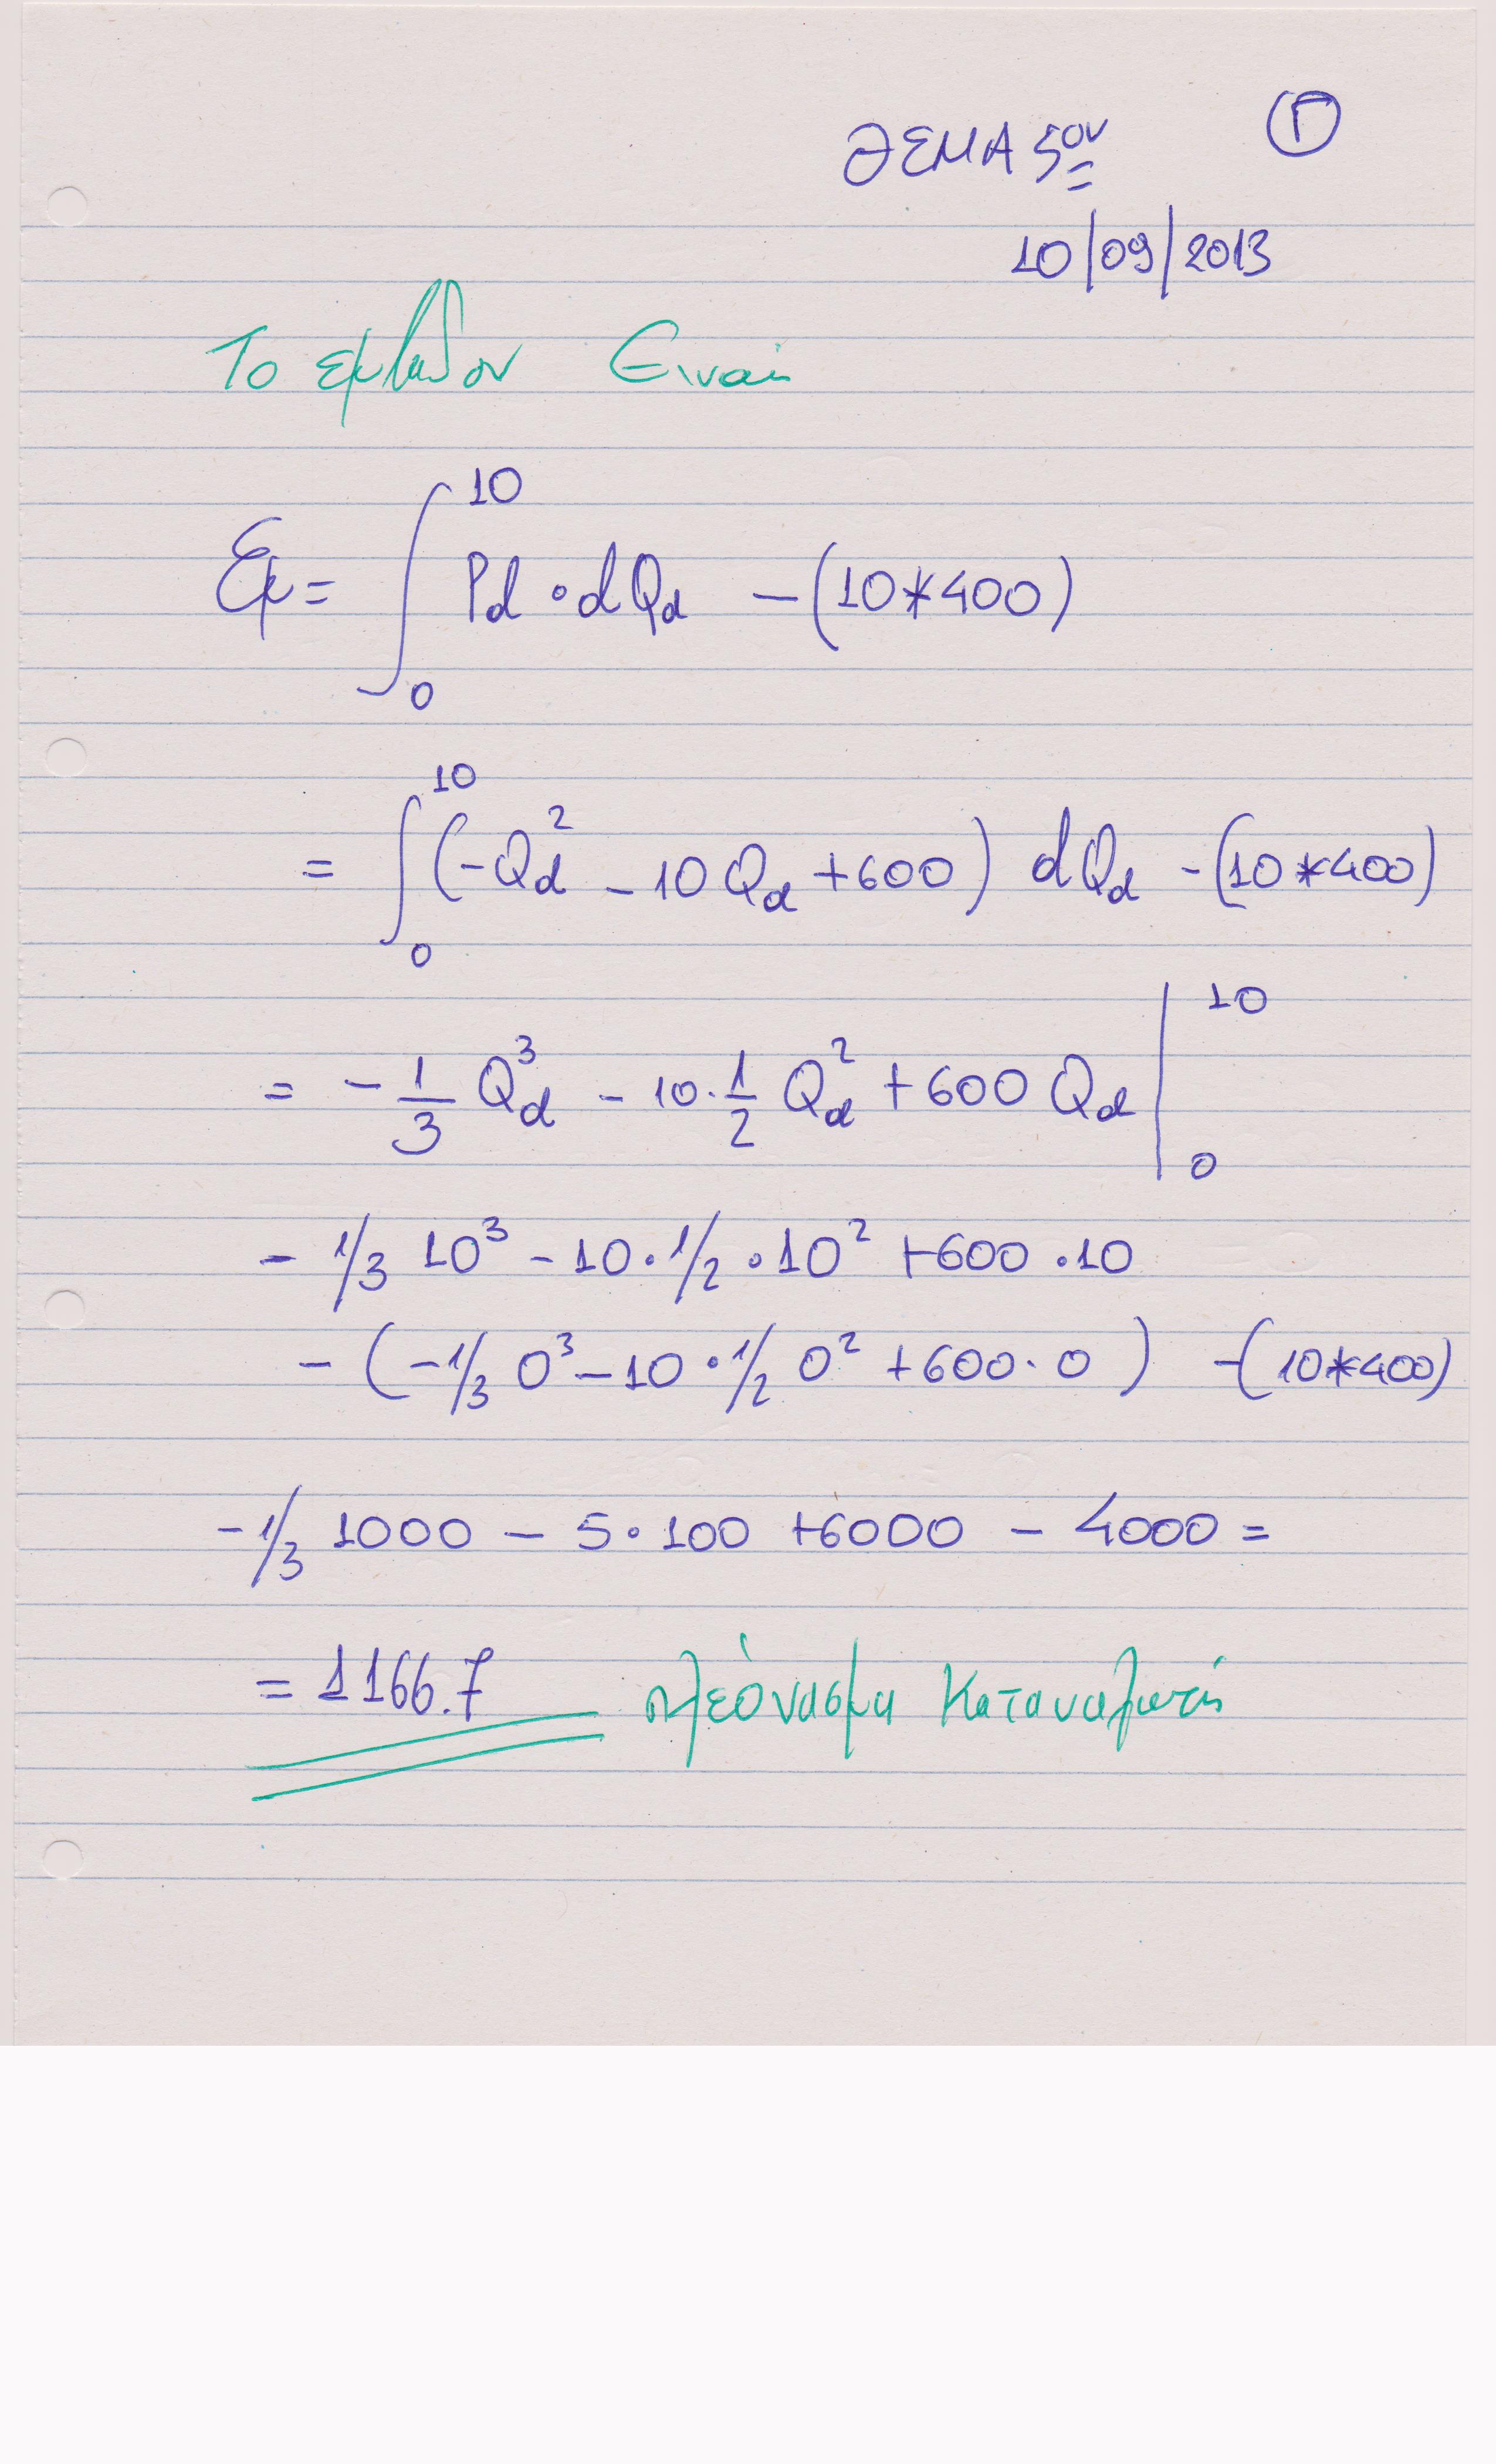 ΘΕΜΑ 5ον Γ
10/09/2013
Το εμβαδον Ειναι
Εμ = ∫₀¹⁰ Pd · dQd - (10*400)
= ∫₀¹⁰ (-Qd² - 10Qd + 600) dQd - (10*400)
= - 1/3 Qd³ - 10 · 1/2 Qd² + 600 Qd |₀¹⁰
- 1/3 10³ - 10 · 1/2 · 10² + 600 · 10
- (-1/3 0³ - 10 · 1/2 0² + 600 · 0) - (10*400)
-1/3 1000 - 5 · 100 + 6000 - 4000 =
= 1166.7 πλεόνασμα Καταναλωτή